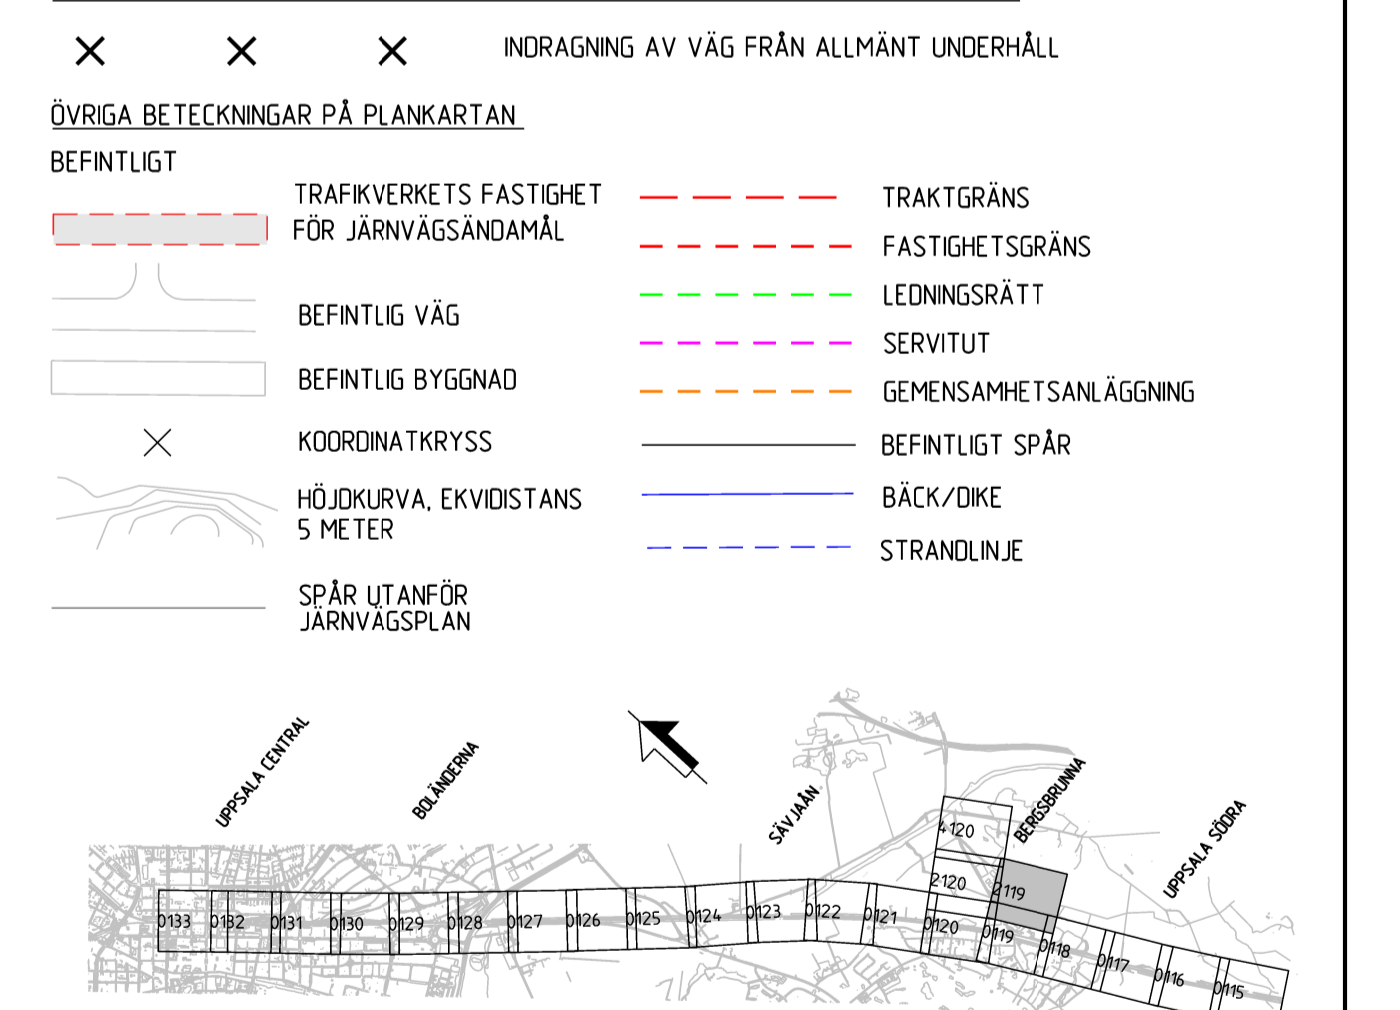 INDRAGNING AV VÄG FRÅN ALLMÄNT UNDERHÅLL
ÖVRIGA BETECKNINGAR PÅ PLANKARTAN
BEFINTLIGT
TRAFIKVERKETS FASTIGHET
FÖR JÄRNVÄGSÄNDAMÅL
BEFINTLIG VÄG
BEFINTLIG BYGGNAD
KOORDINATKRYSS
HÖJDKURVA, EKVIDISTANS
5 METER
SPÅR UTANFÖR
JÄRNVÄGSPLAN
TRAKTGRÄNS
FASTIGHETSGRÄNS
LEDNINGSRÄTT
SERVITUT
GEMENSAMHETSANLÄGGNING
BEFINTLIGT SPÅR
BÄCK/DIKE
STRANDLINJE
UPPSALA CENTRAL
BOLÄNDERNA
SÄVJAÅN
BERGSBRUNNA
UPPSALA SÖDRA
4120
2120
2119
0133
0132
0131
0130
0129
0128
0127
0126
0125
0124
0123
0122
0121
0120
0119
0118
0117
0116
0115